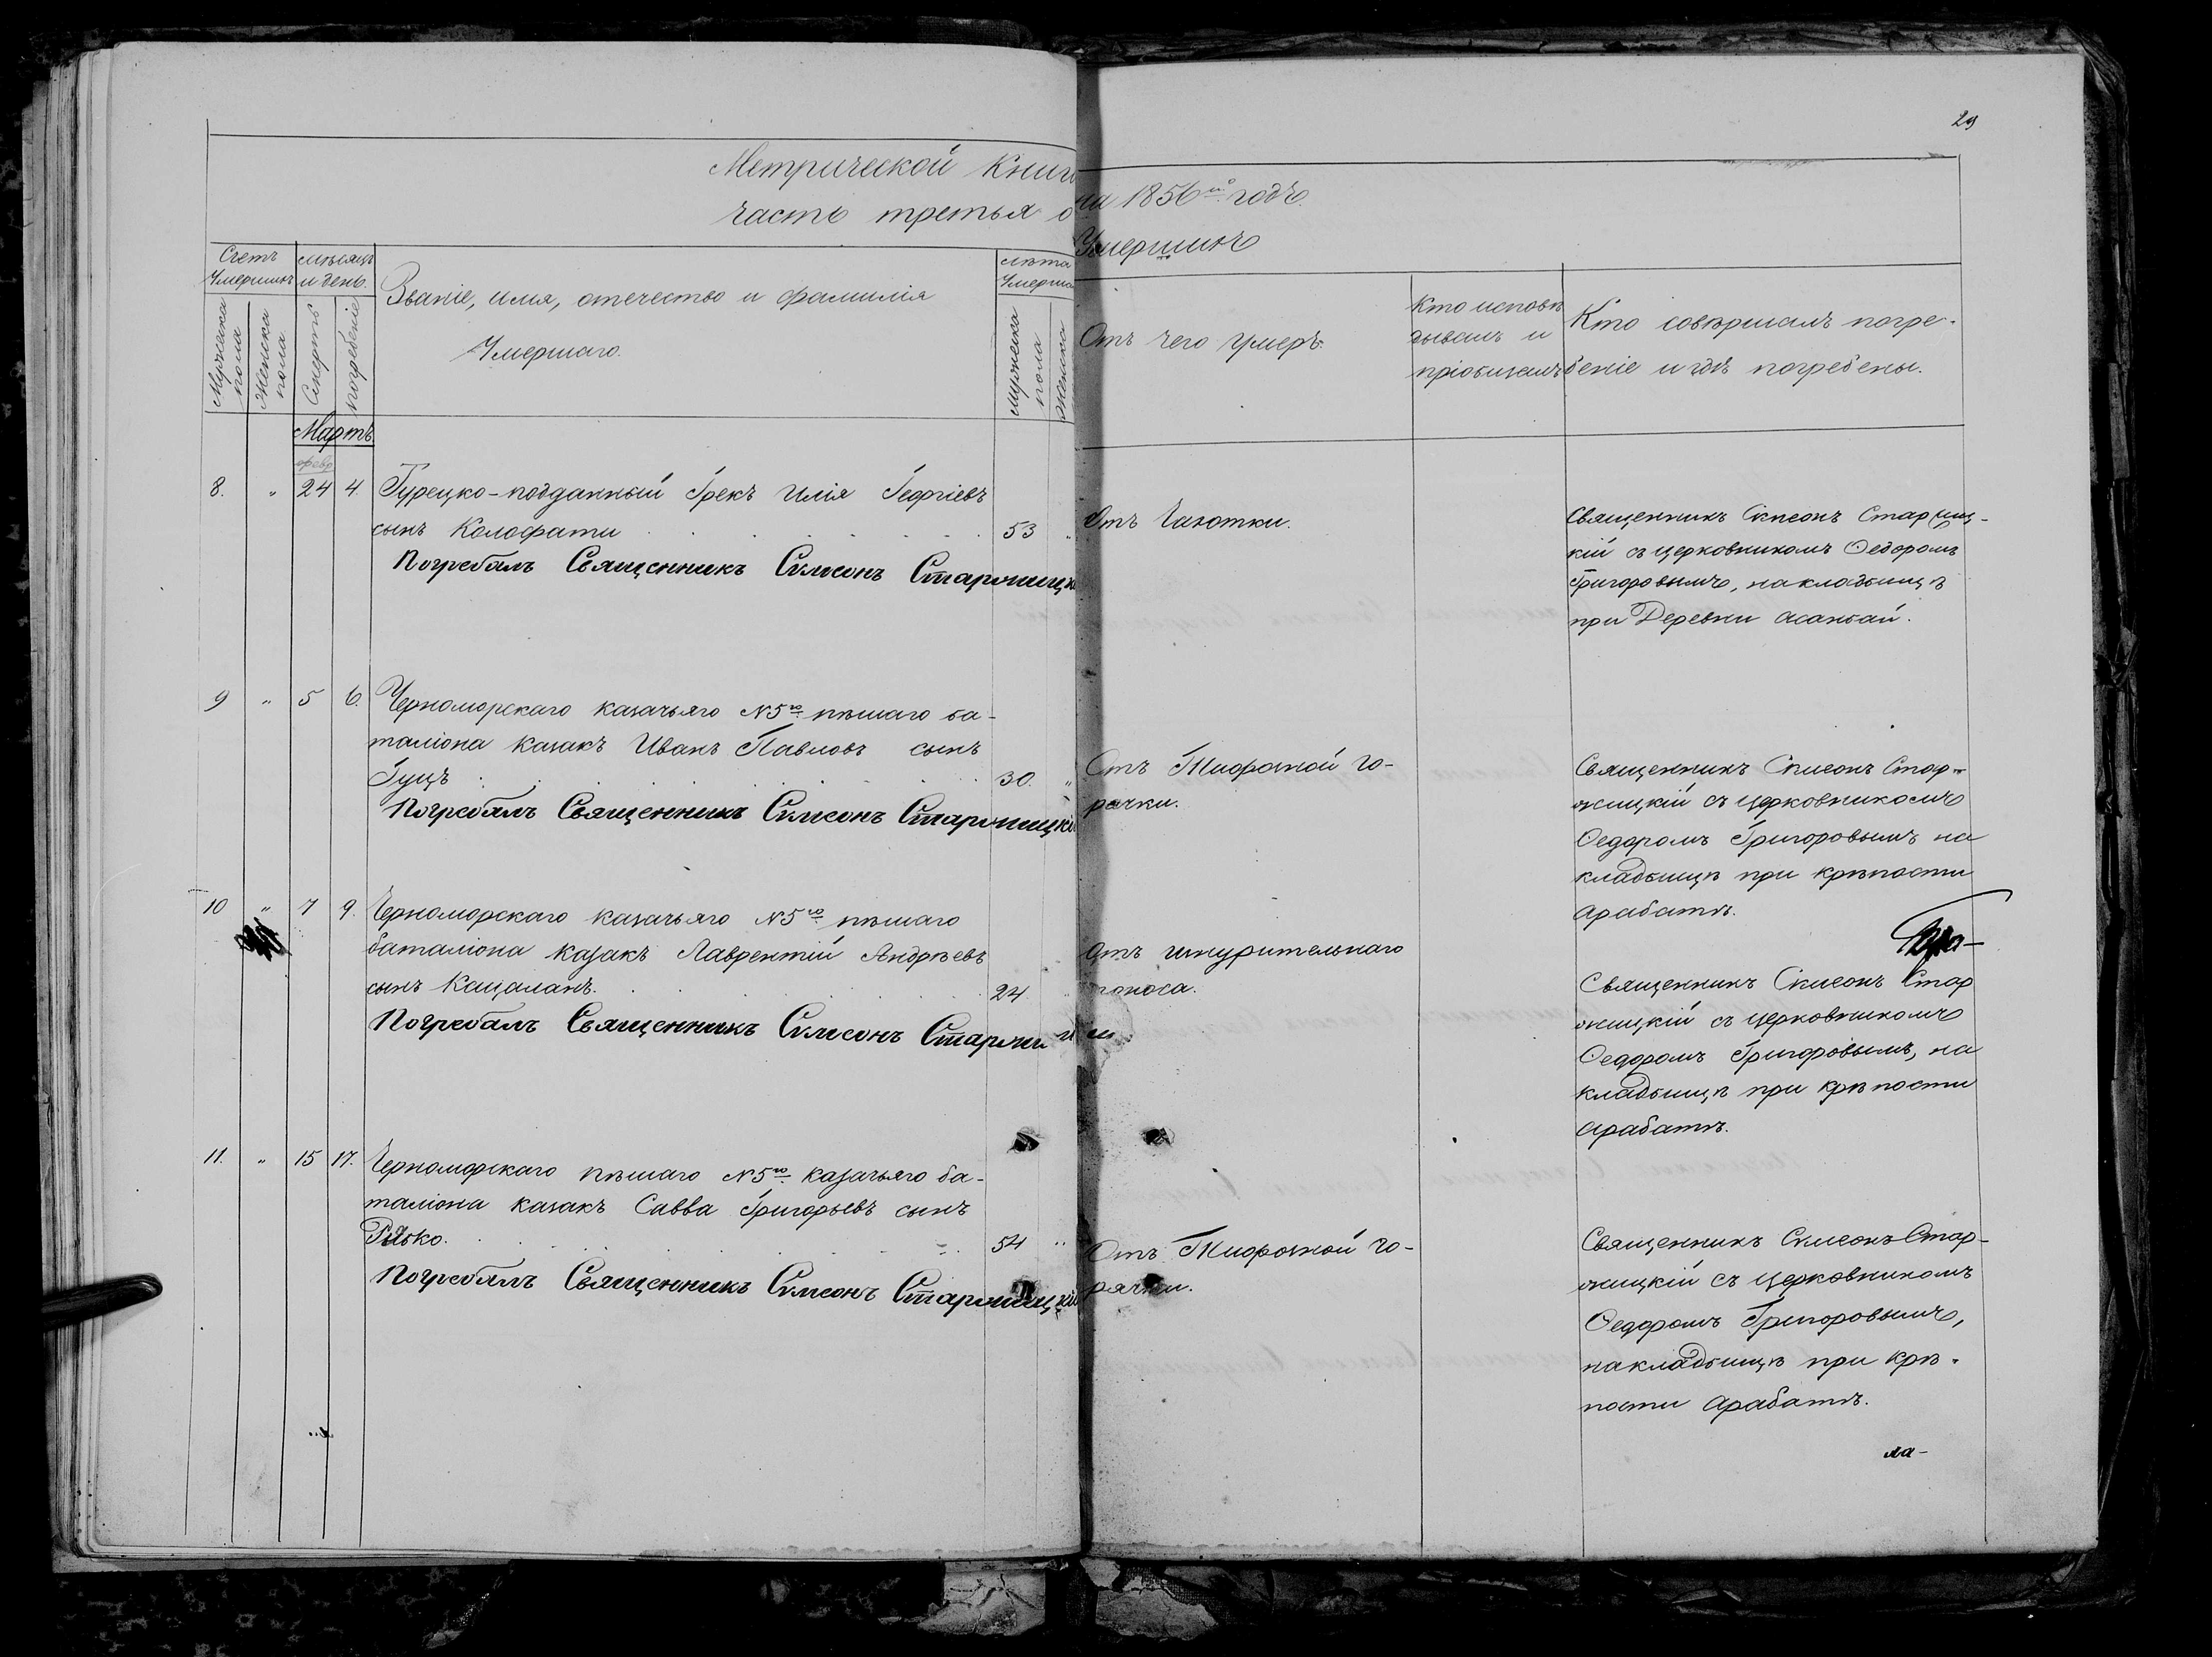 29
Метрической Книги на 1856й годъ.
часть третья о Умершихъ
Счетъ Умершихъ
Мужеска пола
Женска пола
мѣсяцъ и день.
Смерть
погребеніе
Званіе, имя, отечество и фамилія
Умершаго.
лѣта Умерша
Мужеска пола
Женска
Отъ чего умеръ.
Кто исповѣ
дывалъ и
пріобщалъ
Кто совершалъ погре-
беніе и гдѣ погребены.
Мартъ
февр
8. " 24 4. Турецко-подданный Грекъ Илія Георгіевъ
сынъ Колофати 53 "
Погребалъ Священникъ Симеонъ
Отъ Чахотки.
Священникъ Симеонъ
кій съ церковникомъ Ѳедоромъ
Григоровымъ, на кладбищѣ
при Деревни
9 " 5 6. Черноморскаго казачьяго №5го пѣшаго ба-
таліона казакъ Иванъ Павловъ сынъ
Гуцъ 30. "
Погребалъ Священникъ Симеонъ Старжицкій
Отъ Тифозной го-
рячки.
Священникъ Симеонъ Стар-
жицкій съ церковникомъ
Ѳедоромъ Григоровымъ на
кладбищѣ при крѣпости
Арабатѣ.
10 " 7 9. Черноморскаго казачьяго №5го пѣшаго
баталіона казакъ Лаврентій Андрѣевъ
сынъ Кацаланъ. 24
Погребалъ Священникъ Симеонъ
Отъ изнурительнаго
поноса.
Священникъ Симеонъ Стар
жицкій съ церковникомъ
Ѳедоромъ Григоровымъ, на
кладбищѣ при крѣпости
Арабатѣ.
11. " 15 17. Черноморскаго пѣшаго №5го казачьяго ба-
таліона казакъ Савва Григорьевъ сынъ
54 "
Погребалъ Священникъ Симеонъ Старжицкій
Отъ Тифозной го-
рячки.
Священникъ Симеонъ Стар-
жицкій съ церковникомъ
Ѳедоромъ Григоровымъ,
на кладбищѣ при крѣ-
пости Арабатѣ.
ла-